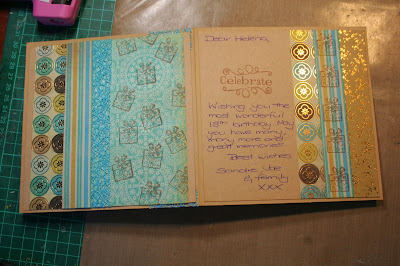 Dear Helena,
Celebrate
Wishing you the
most wonderful
18th birthday. May
you have many,
many more and
great memories
Best wishes
Sandie, Joe
& family
xxx